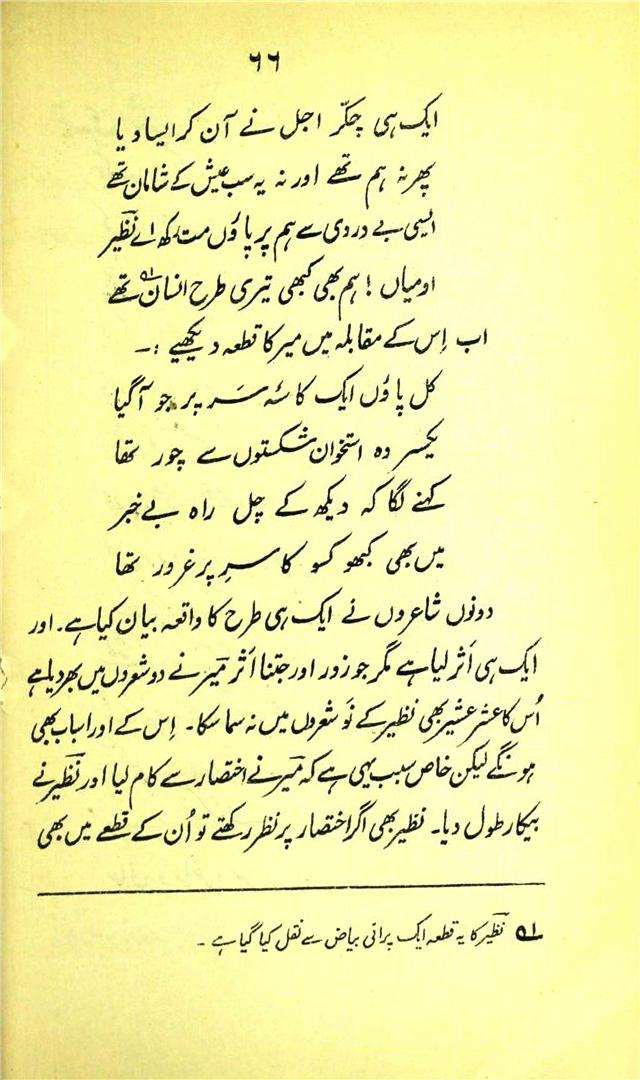 ۶۶
ایک ہی چکّر اجل نے آن کر ایسا دیا
پھر نہ ہم تھے اور نہ یہ سب عیش کے شامان تھے
ایسی بے دردی سے ہم پر پاؤں مت رکھ اے نظیر
او میاں! ہم بھی کبھی تیری طرح انسان ؎۱ تھے
اب اِس کے مقابلہ میں میر کا قطعہ دیکھیے :۔
کل پاؤں ایک کاسۂ سَر پر جو آگیا
یکسر وہ استخوان شکستوں سے چور تھا
کہنے لگا کہ دیکھ کے چل راہ بے خبر
میں بھی کبھو کسو کا سرِ پرغرور تھا
دونوں شاعروں نے ایک ہی طرح کا واقعہ بیان کیا ہے۔ اور
ایک ہی اَثر لیا ہے مگر جو زور اور جتنا اَثر میر نے دو شعروں میں بھر دیا ہے
اُس کا عشر عشیر بھی نظیر کے نَو شعروں میں نہ سما سکا۔ اِس کے اور اسباب بھی
ہونگے لیکن خاص سبب یہی ہے کہ میر نے اختصار سے کام لیا اور نظیر نے
بیکار طول دیا۔ نظیر بھی اگر اختصار پر نظر رکھتے تو اُن کے قطعے میں بھی
؎۱ نظیر کا یہ قطعہ ایک پرانی بیاض سے نقل کیا گیا ہے۔